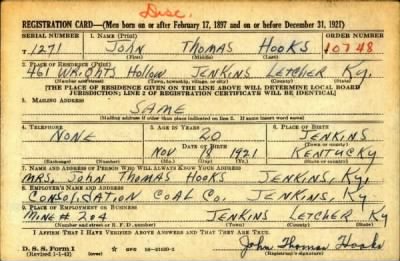 Disc.
REGISTRATION CARD—(Men born on or after February 17, 1897 and on or before December 31, 1921)
SERIAL NUMBER 1. NAME (Print) ORDER NUMBER
T 1271 JOHN THOMAS HOOKS 10748
(First) (Middle) (Last)
2. PLACE OF RESIDENCE (Print)
461 WRIGHTS HOLLOW JENKINS LETCHER KY.
(Number and street) (Town, township, village, or city) (County) (State)
[THE PLACE OF RESIDENCE GIVEN ON THE LINE ABOVE WILL DETERMINE LOCAL BOARD
JURISDICTION; LINE 2 OF REGISTRATION CERTIFICATE WILL BE IDENTICAL]
3. MAILING ADDRESS
SAME
[Mailing address if other than place indicated on line 2. If same insert word same]
4. TELEPHONE 5. AGE IN YEARS 6. PLACE OF BIRTH
NONE 20 JENKINS
DATE OF BIRTH (Town or county)
NOV 19 1921 KENTUCKY
(Exchange) (Number) (Mo.) (Day) (Yr.) (State or country)
7. NAME AND ADDRESS OF PERSON WHO WILL ALWAYS KNOW YOUR ADDRESS
MRS. JOHN THOMAS HOOKS JENKINS, KY.
8. EMPLOYER'S NAME AND ADDRESS
CONSOLIDATION COAL CO. JENKINS, KY
9. PLACE OF EMPLOYMENT OR BUSINESS
MINE # 204 JENKINS LETCHER KY
(Number and street or R. F. D. number) (Town) (County) (State)
I AFFIRM THAT I HAVE VERIFIED ABOVE ANSWERS AND THAT THEY ARE TRUE.
D. S. S. Form 1
(Revised 1-1-42) (over)
John Thomas Hooks